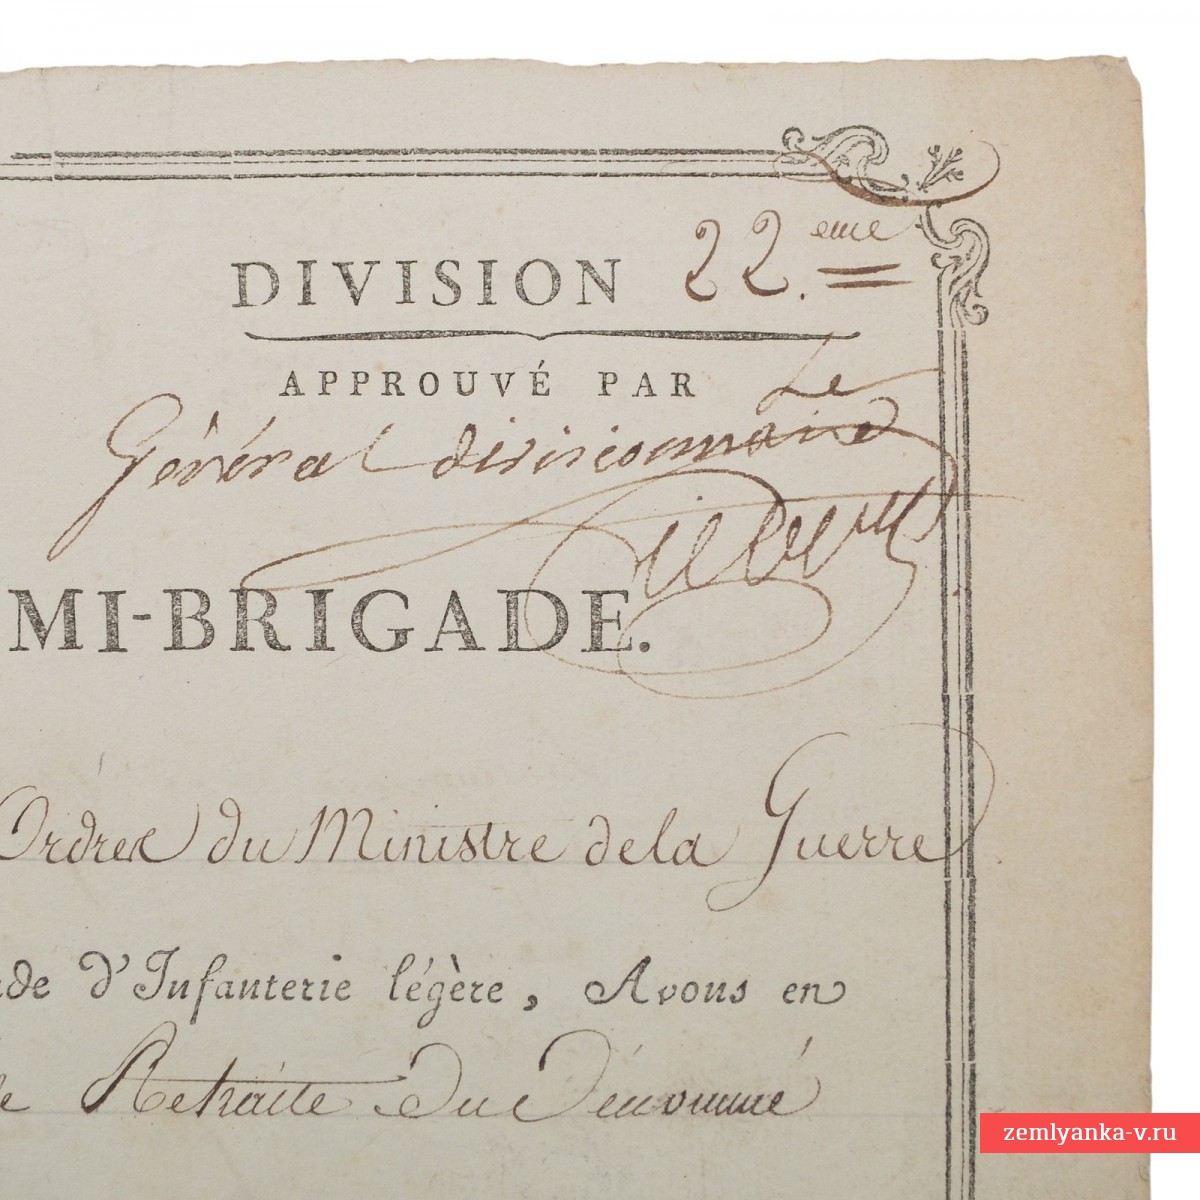 DIVISION 22.eme
APPROUVÉ PAR Le
Général divisionnaire
MI-BRIGADE.
Ordres du Ministre de la Guerre
de d'Infanterie légère, Avons en
Retraite du Dénommé
zemlyanka-v.ru